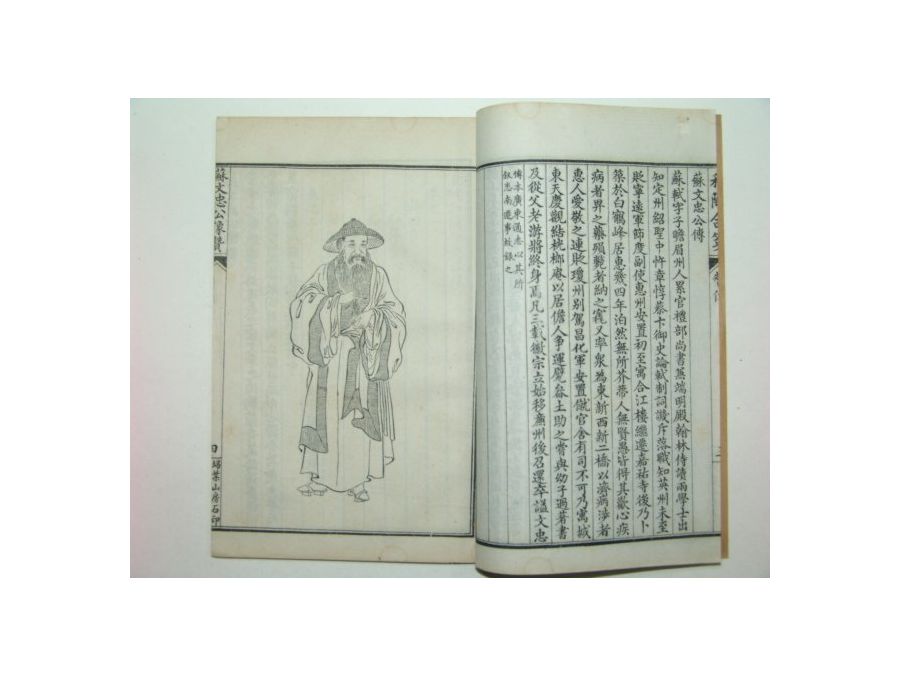 蘇文忠公傳
蘇軾字子瞻眉州人累官禮部尚書兼端明殿翰林侍讀兩學士出
知定州紹聖中忤章惇蔡卞御史論軾制詞譏斥落職知英州未至
貶寧遠軍節度副使惠州安置初至寓合江樓繼遷嘉祐寺後乃卜
築於白鶴峰居惠幾四年泊然無所芥蒂人無賢愚皆得其歡心疾
病者畀之藥殞斃者納之窀又率衆為東新西新二橋以濟病涉者
惠人愛敬之連貶瓊州別駕昌化軍安置僦官舍有司不可乃寓城
東天慶觀結桄榔庵以居儋人爭運甓畚土助之嘗與幼子過著書
及從父老游將終身焉凡三載徽宗立始移廉州後召還卒謚文忠
傳本廣東通志以其所
叙忠南遷事故錄之
蘇文忠公像贊
四
掃葉山房石印